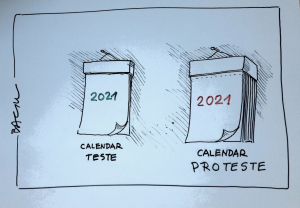 2021
CALENDAR
TESTE
2021
CALENDAR
PROTESTE